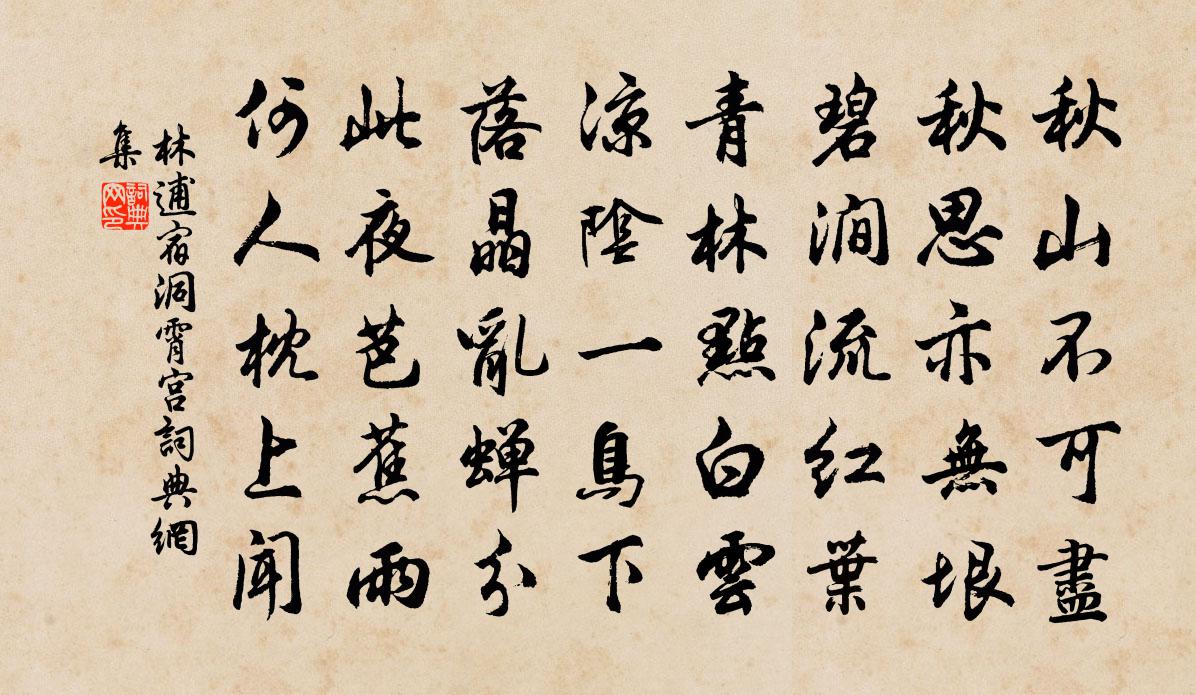 秋山不可盡
秋思亦無垠
碧澗流紅葉
青林點白雲
涼陰一鳥下
落晶亂蟬分
此夜芭蕉雨
何人枕上聞
林逋宿洞霄宮詞典網
集
詞典
网印